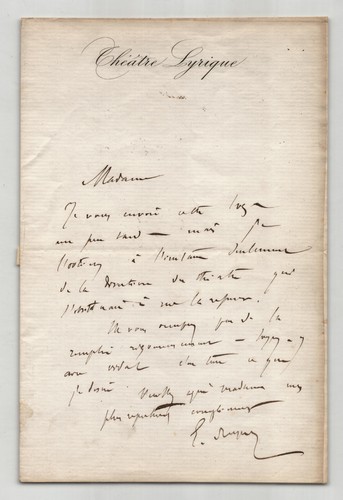 Théâtre Lyrique
Madame
Je vous envoie cette loge
un peu tard — mais je
l'obtiens à l'instant seulement
de la Direction du théâtre qui
s'obstinait à me la refuser.
Ne vous occupez pas de la
remplir rigoureusement — soyez-y
avec votre
je désire. Veuillez agréer madame mes
plus respectueux compliments
E. Reyer